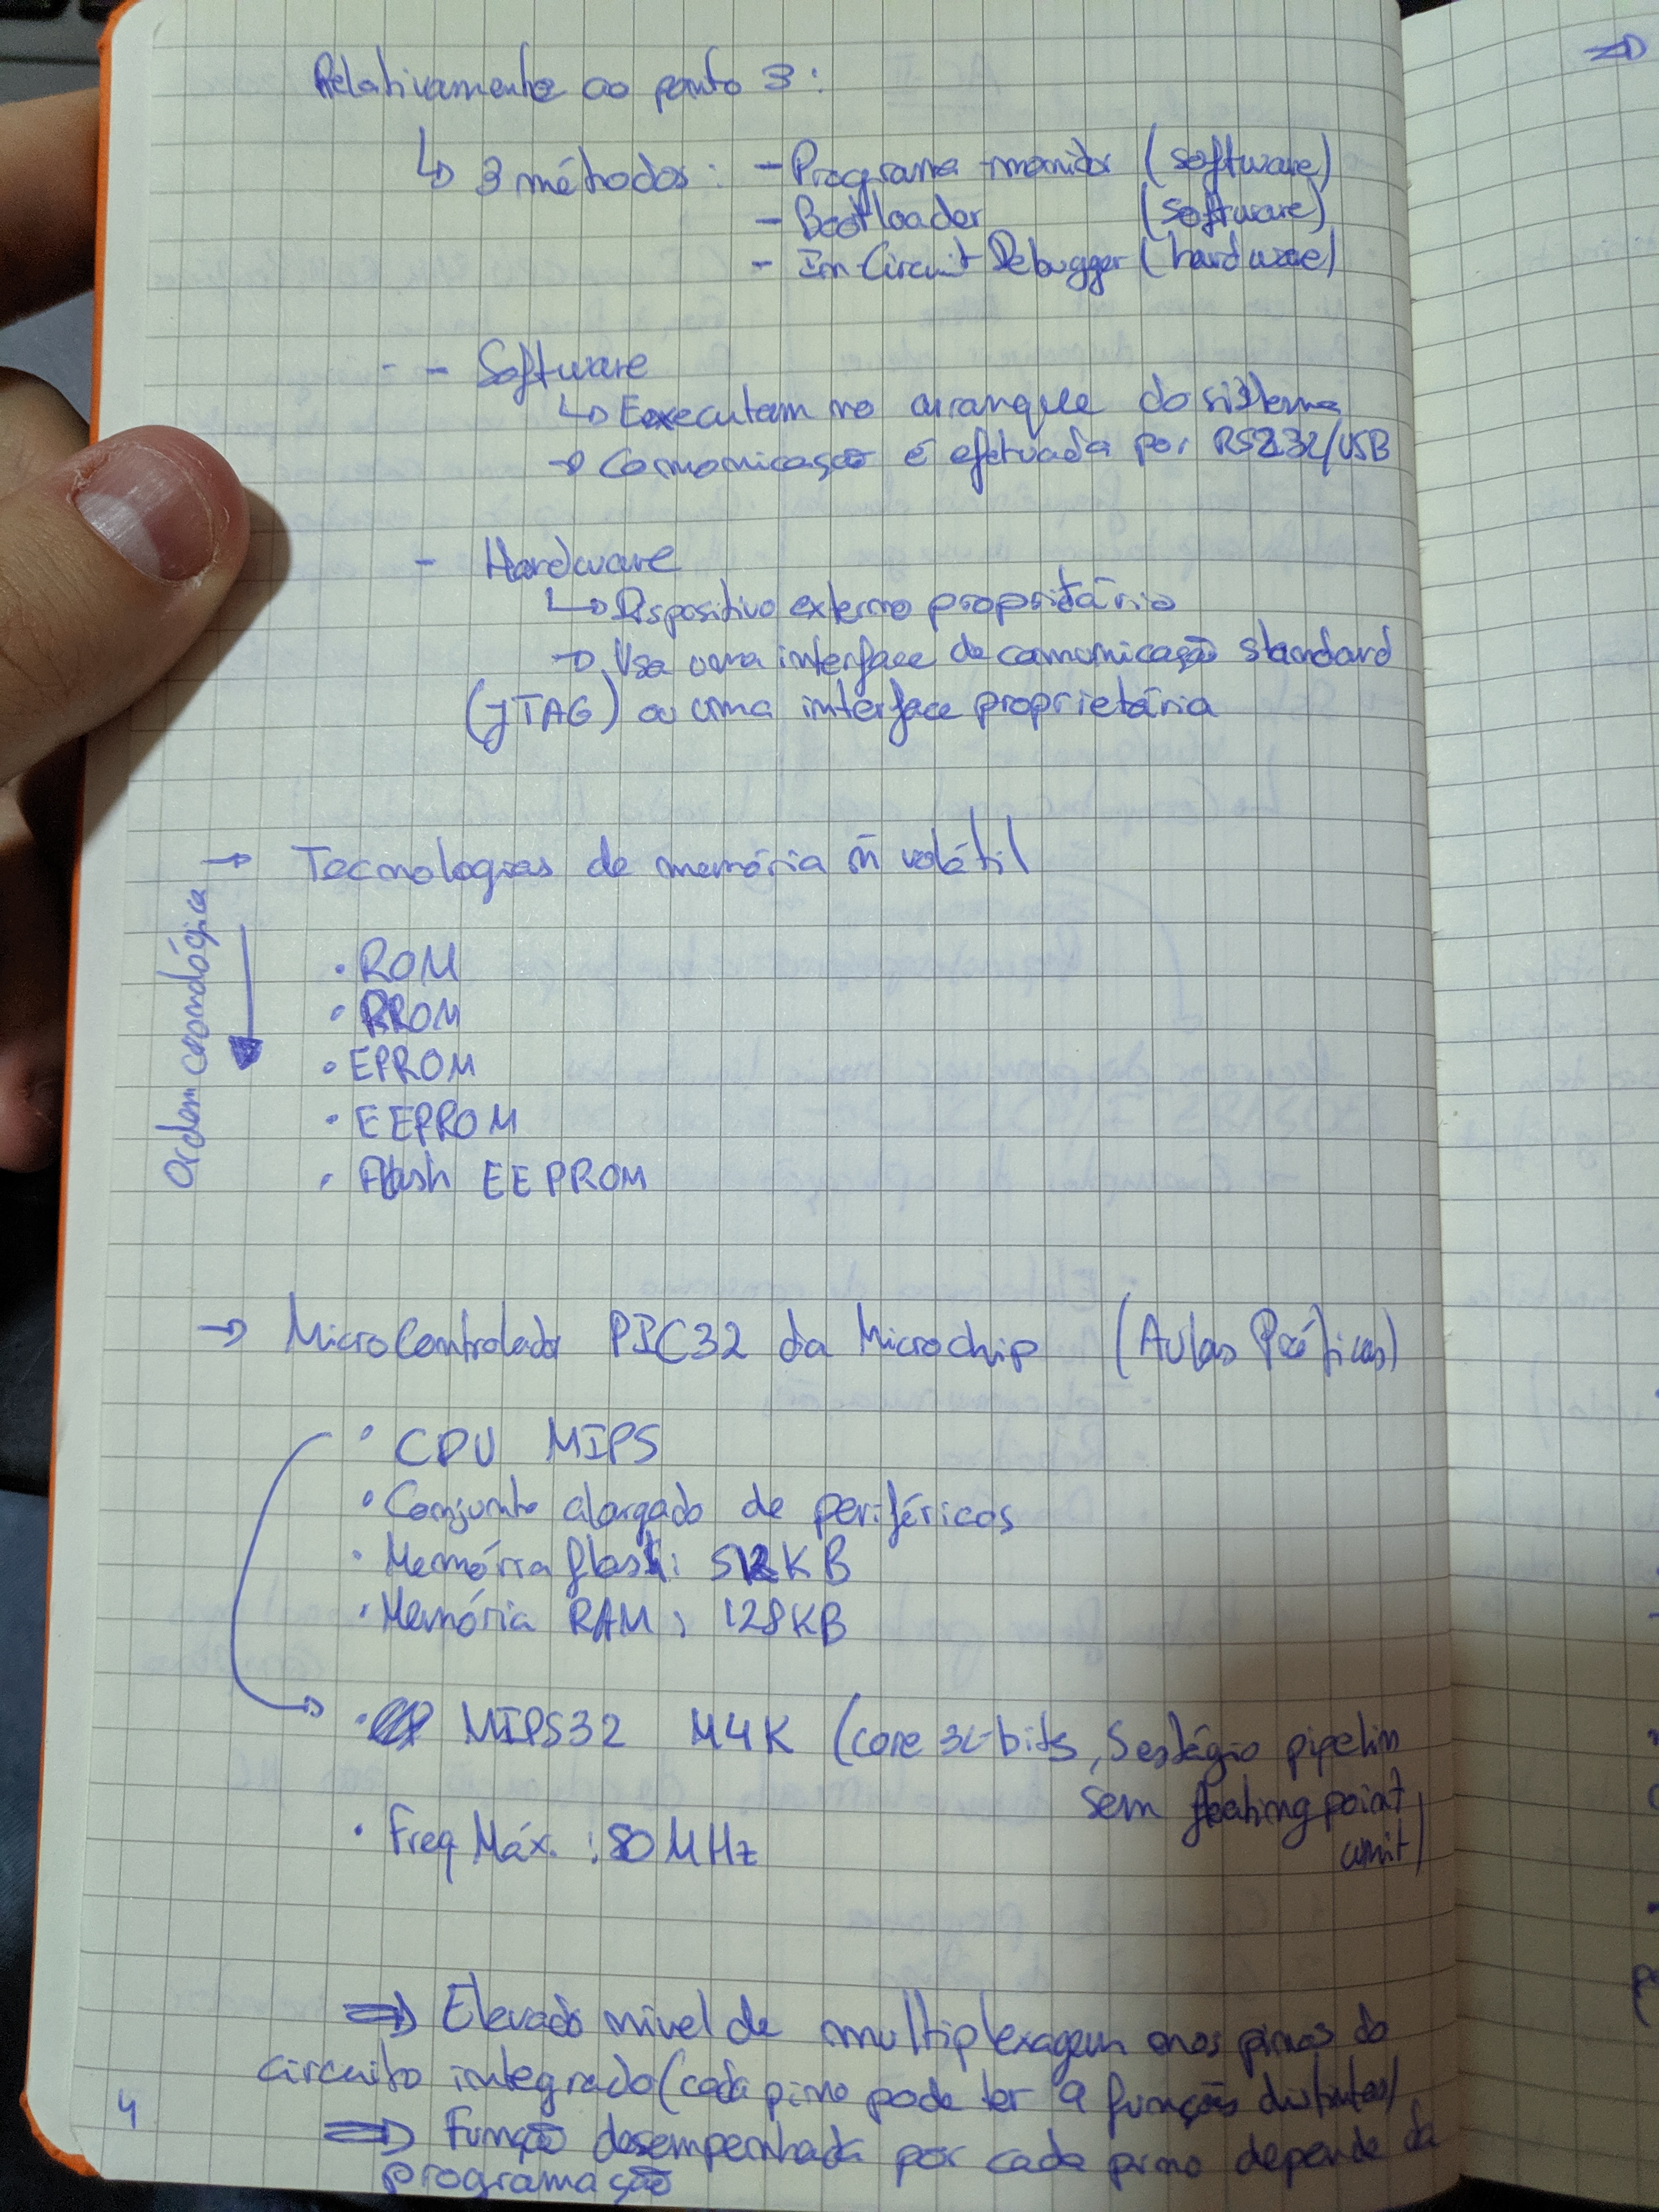 Relativamente ao ponto 3:
↳ 3 métodos: - Programa-monitor (software)
- Bootloader (software)
- In-Circuit Debugger (hardware)
- - Software
↳ Executam no arranque do sistema
→ Comunicação é efetuada por RS232/USB
- Hardware
↳ Dispositivo externo proprietário
→ Usa uma interface de comunicação standard
(JTAG) ou uma interface proprietária
→ Tecnologias de memória ñ volátil
Ordem cronológica
• ROM
• PROM
• EPROM
• EEPROM
• Flash EEPROM
→ MicroControlador PIC32 da Microchip (Aulas Práticas)
• CPU MIPS
• Conjunto alargado de periféricos
• Memória flash: 512KB
• Memória RAM: 128KB
• MIPS32 M4K (core 32-bits, 5 estágio pipelin
sem floating point
unit)
• Freq Máx.: 80 MHz
⇒ Elevado nível de multiplexagem nos pinos do
circuito integrado (cada pino pode ter 4 funções distintas)
⇒ Função desempenhada por cada pino depende da
programação
4